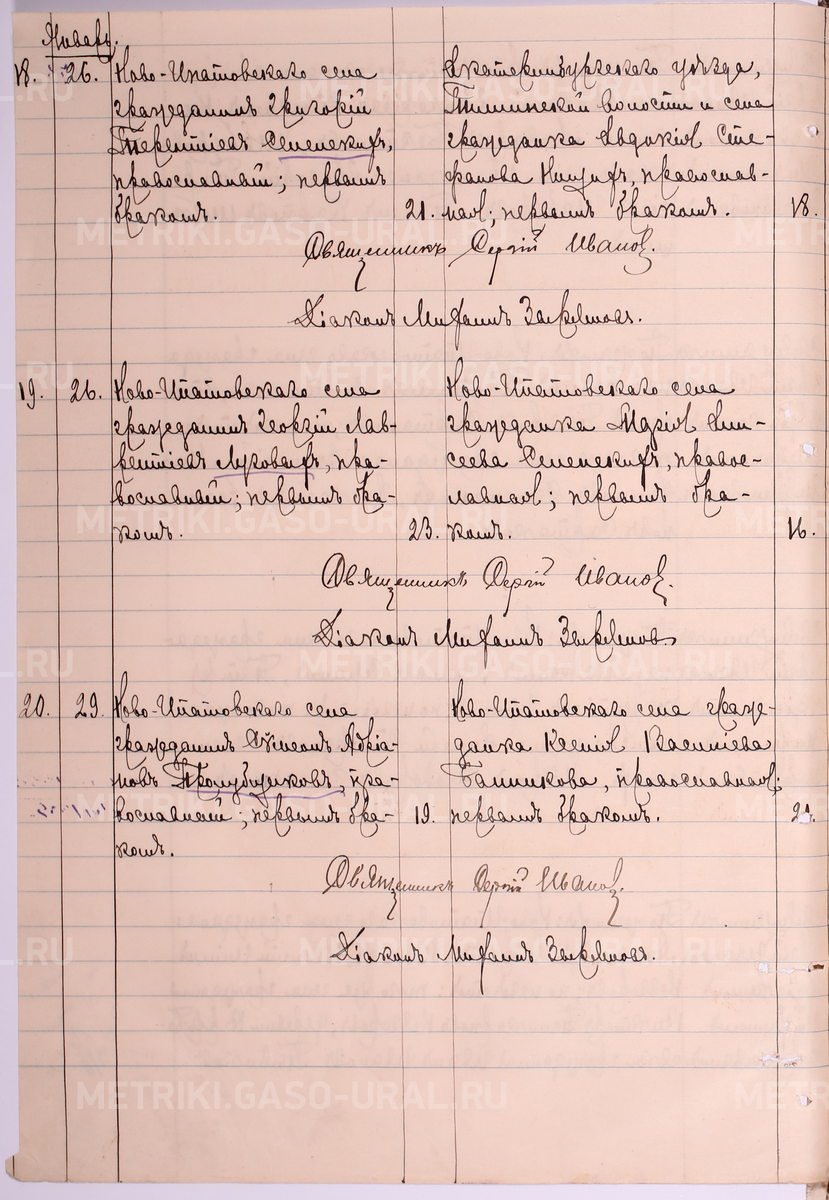 Январь.
18. 26. Ново-Ипатовскаго села
гражданинъ Григорій
Терентіевъ
православный; первымъ
бракомъ. 21.
Екатеринбургскаго уѣзда,
волости и села
гражданка Евдокія Сте-
фанова православ-
ная; первымъ бракомъ. 18.
Священникъ Сергій Иванов.
Діаконъ Михаилъ
19. 26. Ново-Ипатовскаго села
гражданинъ Георгій Лав-
рентіевъ пра-
вославный; первымъ бра-
комъ. 23.
Ново-Ипатовскаго села
гражданка Марія Ели-
сеева правос-
лавная; первымъ бра-
комъ. 16.
Священникъ Сергій Иванов.
Діаконъ Михаилъ
20. 29. Ново-Ипатовскаго села
гражданинъ Сѵмеонъ Адріа-
новъ Голубчиковъ, пра-
вославный; первымъ бра-
комъ. 19.
Ново-Ипатовскаго села граж-
данка Ксенія Васильева
Банникова, православная;
первымъ бракомъ.
Священникъ Сергій Иванов.
Діаконъ Михаилъ
METRIKI.GASO-URAL.RU